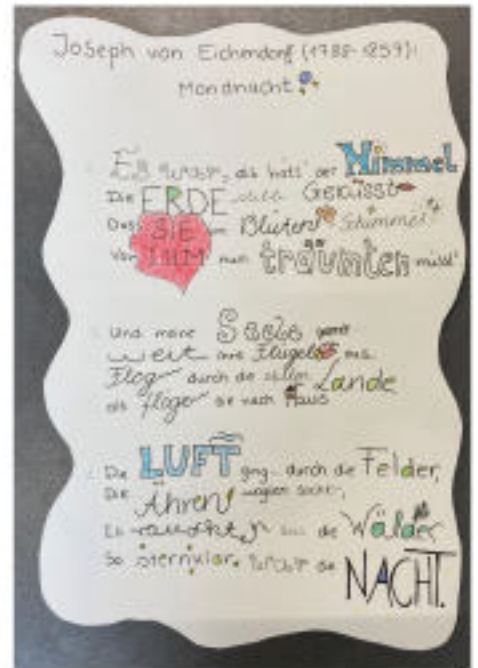 Joseph von Eichendorf (1788-1857):
Mondnacht
Es war, als hätt' der Himmel
Die ERDE still Geküsst
Dass SIE im Blüten Schimmer
Von IHM nun träumten müsst'
Und meine Seele spannt
weit ihre Flügel aus
Flog durch die stillen Lande
als flöge sie nach Haus
Die LUFT ging durch die Felder,
Die Ähren wogten sacht,
Es rauschten die Wälder
So sternklar war die NACHT.